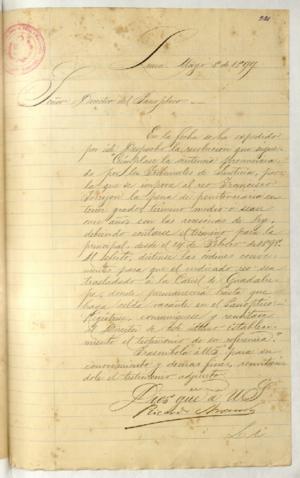 Lima Mayo 2 de 1899
Señor Director del Panóptico
En la fecha se ha expedido
por este Despacho la resolución que sigue
"Cúmplase la sentencia pronunciada
por los Tribunales de Justicia, por
la que se impone al reo Francisco
la pena de penitenciaria en
tercer grado, término medio, ó sean
once años con las accesorias de ley,
debiendo contarse el término para la
principal, desde el 14 de Febrero de
Al efecto, dictense las ordenes conve-
nientes para que el indicado reo sea
trasladado á la Carcel de Guadalu-
pe, donde permanecerá hasta que
haya celda vacante en el Panóptico
Regístrese, comuníquese y remítase
al Director de este establec-
imiento el testimonio de su referencia".
Trascríbolo á US. para su
conocimiento y demás fines, remitién-
dole el testimonio adjunto.
Dios gue á US.
Ricardo